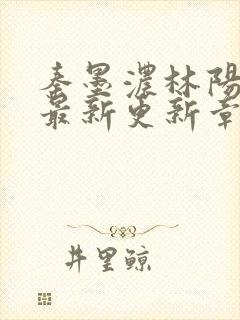 秦墨濃林陽
最新更新章
井里鲸